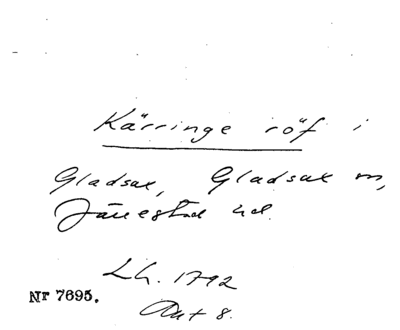 Kärringe röf i
Gladsax, Gladsax sn,
Järrestad hd.
Lh. 1792
Akt 8.
Nr 7695.